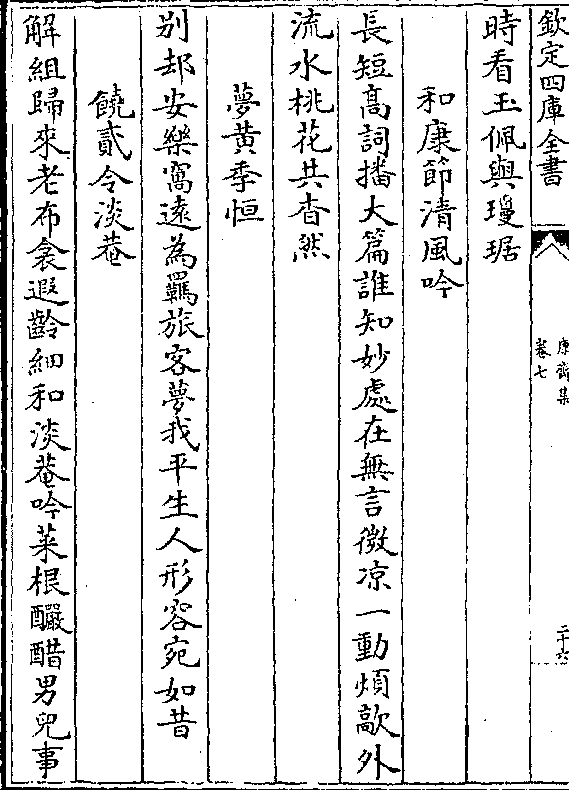 欽定四庫全書
康齋集
卷七
二十六
時看玉佩與瓊琚
和康節清風吟
長短高詞播大篇誰知妙處在無言微凉一動煩歊外
流水桃花共杳然
夢黄季恒
别却安樂窩遠為羈旅客夢我平生人形容宛如昔
饒貳令淡菴
解組歸來老布衾遐齡細和淡菴吟菜根釅醋男兒事